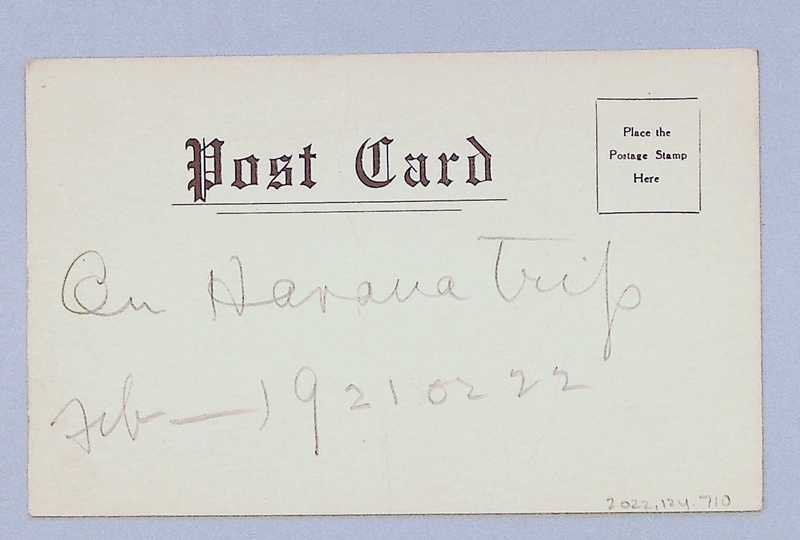 Post Card
Place the
Postage Stamp
Here
On Havana Trip
Feb — 1921 or 22
2022.124.710